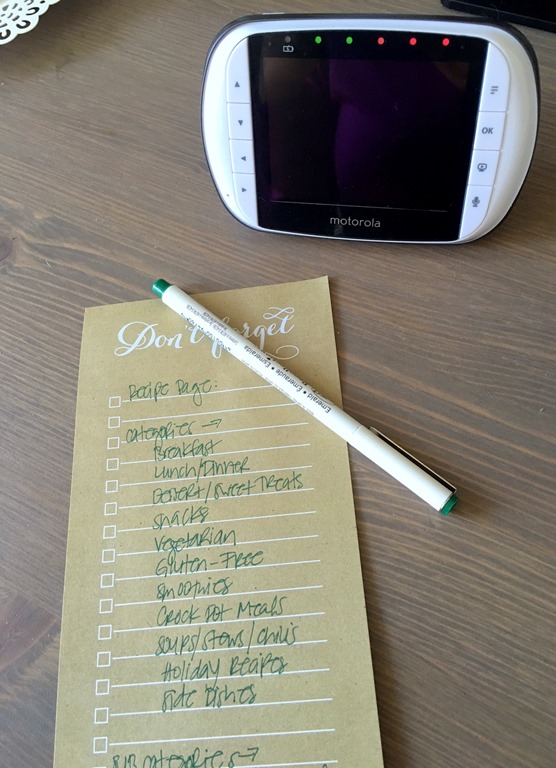 OK
motorola
Don't forget
Emerald • Emeraude • Esmeralda
Recipe Page:
Categories →
Breakfast
Lunch/Dinner
Dessert/Sweet Treats
Snacks
Vegetarian
Gluten-Free
Smoothies
Crock Pot Meals
Soups/Stews/Chilis
Holiday Recipes
Side Dishes
Sub categories →